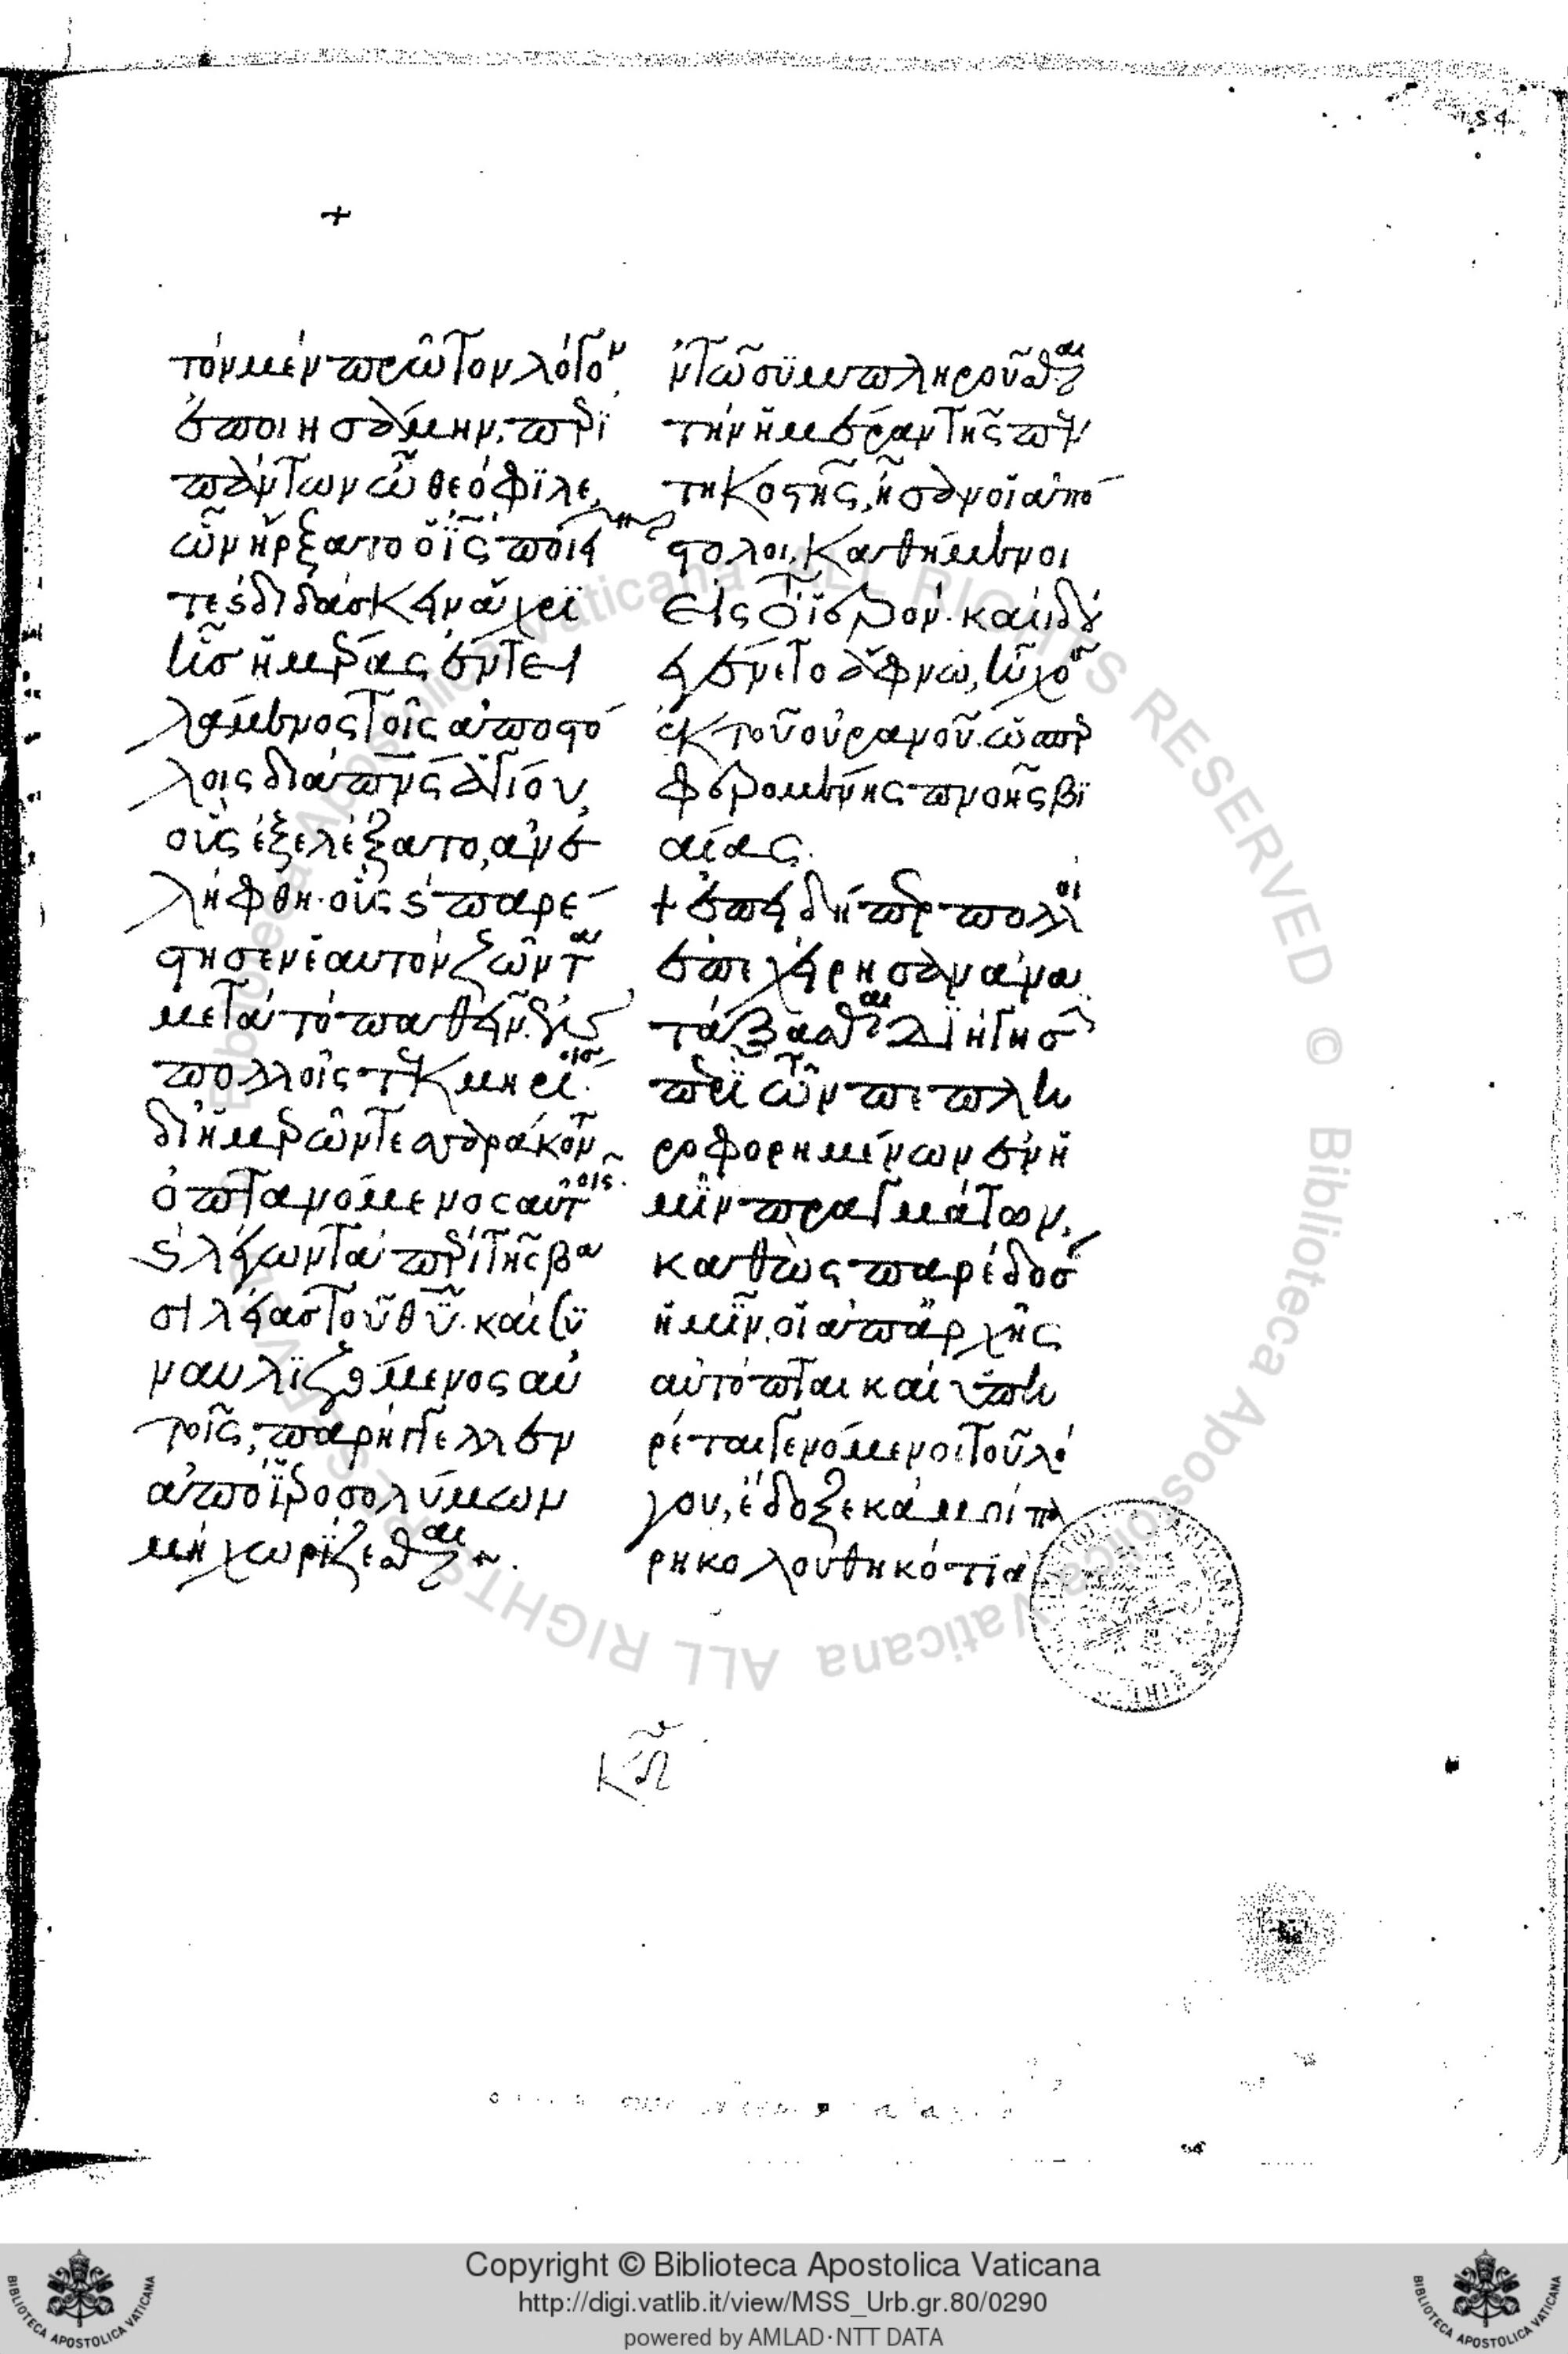 154
+
τὸν μὲν πρῶτον λόγον
ἐποιησάμην, περὶ
πάντων ὦ θεόφϊλε,
ὧν ἤρξατο ὁ ι̅ς̅ ποιεῖν
τε ϗ διδάσκειν ἄχρϊ
ἧσ ἡμέρας, ἐντει
λάμενος τοῖς ἀποστό
λοις διὰ π̅ν̅ς̅ ἁγίου,
οὓς ἐξελέξατο, ἀνε
λήφθη· οἷς ϗ παρέ
στησεν ἑαυτὸν ζῶντα
μετὰ τὸ παθεῖν ἐν
πολλοῖς τεκμηρίοισ·
δι ἡμερῶν τεσσαράκοντ
ὀπτανόμενος αὐτοῖς·
ϗ λέγων τὰ περὶ τῆς βα
σιλείας τοῦ θ̅υ̅. καὶ συ
ναυλϊζόμενος αὐ
τοῖς, παρήγγελλεν
ἀπὸ ϊεροσολύμων
μὴ χωρίζεσθαι ~.
ἐν τῶ συμπληροῦσθαι
τὴν ἡμέραν τῆς πεν
τηκοστῆς, ἦσαν οἱ ἀπό
στολοι, καθήμενοι
εἰς τὸ ϊερόν· καὶ ἰδοὺ
ἐγένετο ἄφνω, ἦχοσ
ἐκ τοῦ οὐρανοῦ. ὥσπερ
φερομένης πνοῆς βϊ
αίας.
+ ἐπειδήπερ πολλοὶ
ἐπεχείρησαν ἀνα
τάξασθαι διήγησιν
περὶ τῶν πεπλη
ροφορημένων ἐν ἡ
μῖν πραγμάτων,
καθὼς παρέδοσ
ἡμῖν, οἱ ἀπ' ἀρχῆς
αὐτόπται καὶ ὑπη
ρέται γενόμενοι τοῦ λό
γου, ἔδοξε κἀμοὶ πα
ρηκολουθηκότι ἄ
Copyright © Biblioteca Apostolica Vaticana
http://digi.vatlib.it/view/MSS_Urb.gr.80/0290
powered by AMLAD·NTT DATA